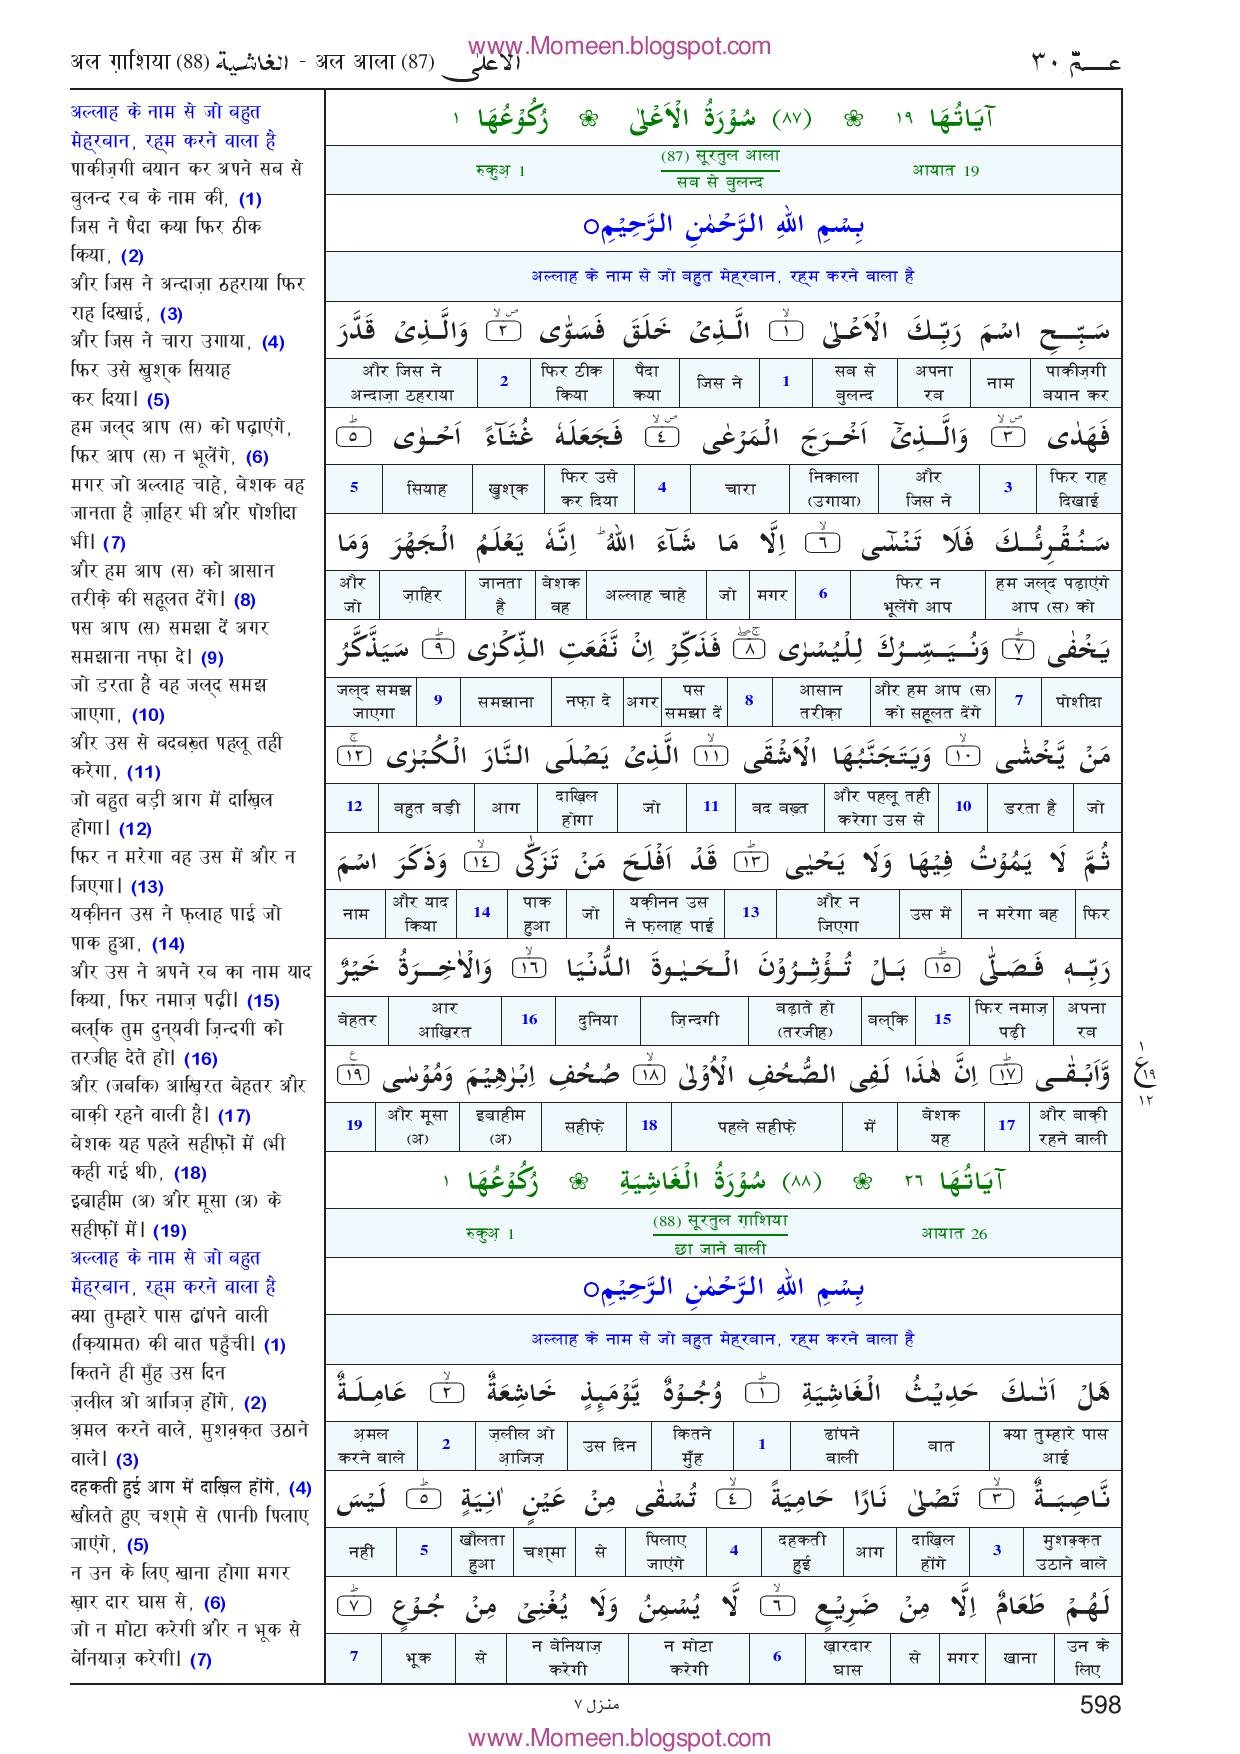 www.Momeen.blogspot.com
अल ग़ाशिया (88) الغاشية - अल आला (87) الاعلى
عـمّ ٣٠
अल्लाह के नाम से जो बहुत
मेह्रबान, रह्म करने वाला है
पाकीज़गी बयान कर अपने सब से
बुलन्द रब के नाम की, (1)
जिस ने पैदा क्या फिर ठीक
किया, (2)
और जिस ने अन्दाज़ा ठहराया फिर
राह दिखाई, (3)
और जिस ने चारा उगाया, (4)
फिर उसे खुश्क सियाह
कर दिया। (5)
हम जल्द आप (स) को पढ़ाएंगे,
फिर आप (स) न भूलेंगे, (6)
मगर जो अल्लाह चाहे, बेशक वह
जानता है ज़ाहिर भी और पोशीदा
भी। (7)
और हम आप (स) को आसान
तरीक़े की सहूलत देंगे। (8)
पस आप (स) समझा दें अगर
समझाना नफ़ा दे। (9)
जो डरता है वह जल्द समझ
जाएगा, (10)
और उस से बदबख़्त पहलू तही
करेगा, (11)
जो बहुत बड़ी आग में दाख़िल
होगा। (12)
फिर न मरेगा वह उस में और न
जिएगा। (13)
यक़ीनन उस ने फ़लाह पाई जो
पाक हुआ, (14)
और उस ने अपने रब का नाम याद
किया, फिर नमाज़ पढ़ी। (15)
बल्कि तुम दुन्यवी ज़िन्दगी को
तरजीह देते हो। (16)
और (जबकि) आख़िरत बेहतर और
बाक़ी रहने वाली है। (17)
बेशक यह पहले सहीफ़ों में (भी
कही गई थी), (18)
इब्राहीम (अ) और मूसा (अ) के
सहीफ़ों में। (19)
अल्लाह के नाम से जो बहुत
मेह्रबान, रह्म करने वाला है
क्या तुम्हारे पास ढांपने वाली
(क़ियामत) की बात पहुँची। (1)
कितने ही मुँह उस दिन
ज़लील ओ आजिज़ होंगे, (2)
अ़मल करने वाले, मुशक़्क़त उठाने
वाले। (3)
दहकती हुई आग में दाख़िल होंगे, (4)
खौलते हुए चश्मे से (पानी) पिलाए
जाएंगे, (5)
न उन के लिए खाना होगा मगर
ख़ार दार घास से, (6)
जो न मोटा करेगी और न भूक से
बेनियाज़ करेगी। (7)
آيَاتُهَا ١٩ ❀ (٨٧) سُوْرَةُ الْاَعْلٰى ❀ رُكُوْعُهَا ١
रुकुअ़ 1 (87) सूरतुल आला आयात 19
सब से बुलन्द
بِسْمِ اللهِ الرَّحْمٰنِ الرَّحِيْمِ○
अल्लाह के नाम से जो बहुत मेह्रबान, रह्म करने वाला है
سَبِّحِ اسْمَ رَبِّكَ الْاَعْلٰى ١ۙ الَّذِىْ خَلَقَ فَسَوّٰى ٢ۙ وَالَّذِىْ قَدَّرَ
और जिस ने 2 फिर ठीक पैदा जिस ने 1 सब से अपना नाम पाकीज़गी
अन्दाज़ा ठहराया किया क्या बुलन्द रब बयान कर
فَهَدٰى ٣ۙ وَالَّذِىْٓ اَخْرَجَ الْمَرْعٰى ٤ۙ فَجَعَلَهٗ غُثَآءً اَحْوٰى ٥ؕ
5 सियाह खुश्क फिर उसे 4 चारा निकाला और 3 फिर राह
कर दिया (उगाया) जिस ने दिखाई
سَنُقْرِئُكَ فَلَا تَنْسٰٓى ٦ۙ اِلَّا مَا شَآءَ اللهُ ؕ اِنَّهٗ يَعْلَمُ الْجَهْرَ وَمَا
और ज़ाहिर जानता बेशक अल्लाह चाहे जो मगर 6 फिर न हम जल्द पढ़ाएंगे
जो है वह भूलेंगे आप आप (स) को
يَخْفٰى ٧ؕ وَنُيَسِّرُكَ لِلْيُسْرٰى ٨ۖۚ فَذَكِّرْ اِنْ نَّفَعَتِ الذِّكْرٰى ٩ؕ سَيَذَّكَّرُ
जल्द समझ 9 समझाना नफ़ा दे अगर पस 8 आसान और हम आप (स) 7 पोशीदा
जाएगा समझा दें तरीक़ा को सहूलत देंगे
مَنْ يَّخْشٰى ١٠ۙ وَيَتَجَنَّبُهَا الْاَشْقَى ١١ۙ الَّذِىْ يَصْلَى النَّارَ الْكُبْرٰى ١٢ۚ
12 बहुत बड़ी आग दाख़िल जो 11 बद बख़्त और पहलू तही 10 डरता है जो
होगा करेगा उस से
ثُمَّ لَا يَمُوْتُ فِيْهَا وَلَا يَحْيٰى ١٣ؕ قَدْ اَفْلَحَ مَنْ تَزَكّٰى ١٤ۙ وَذَكَرَ اسْمَ
नाम और याद 14 पाक जो यक़ीनन उस 13 और न उस में न मरेगा वह फिर
किया हुआ ने फ़लाह पाई जिएगा
رَبِّهٖ فَصَلّٰى ١٥ؕ بَلْ تُؤْثِرُوْنَ الْحَيٰوةَ الدُّنْيَا ١٦ۙ وَالْاٰخِرَةُ خَيْرٌ
बेहतर आर 16 दुनिया ज़िन्दगी बढ़ाते हो बल्कि 15 फिर नमाज़ अपना
आख़िरत (तरजीह) पढ़ी रब
وَّاَبْقٰى ١٧ؕ اِنَّ هٰذَا لَفِى الصُّحُفِ الْاُوْلٰى ١٨ۙ صُحُفِ اِبْرٰهِيْمَ وَمُوْسٰى ١٩ۧ
١
ع ١٩
١٢
19 और मूसा इब्राहीम सहीफ़े 18 पहले सहीफ़े में बेशक 17 और बाक़ी
(अ) (अ) यह रहने वाली
آيَاتُهَا ٢٦ ❀ (٨٨) سُوْرَةُ الْغَاشِيَةِ ❀ رُكُوْعُهَا ١
रुकुअ़ 1 (88) सूरतुल ग़ाशिया आयात 26
छा जाने वाली
بِسْمِ اللهِ الرَّحْمٰنِ الرَّحِيْمِ○
अल्लाह के नाम से जो बहुत मेह्रबान, रह्म करने वाला है
هَلْ اَتٰىكَ حَدِيْثُ الْغَاشِيَةِ ١ؕ وُجُوْهٌ يَّوْمَىِٕذٍ خَاشِعَةٌ ٢ۙ عَامِلَةٌ
अ़मल 2 ज़लील ओ उस दिन कितने 1 ढांपने बात क्या तुम्हारे पास
करने वाले आ़जिज़ मुँह वाली आई
نَّاصِبَةٌ ٣ۙ تَصْلٰى نَارًا حَامِيَةً ٤ۙ تُسْقٰى مِنْ عَيْنٍ اٰنِيَةٍ ٥ؕ لَيْسَ
नही 5 खौलता चश्मा से पिलाए 4 दहकती आग दाख़िल 3 मुशक़्क़त
हुआ जाएंगे हुई होंगे उठाने वाले
لَهُمْ طَعَامٌ اِلَّا مِنْ ضَرِيْعٍ ٦ۙ لَّا يُسْمِنُ وَلَا يُغْنِىْ مِنْ جُوْعٍ ٧ؕ
7 भूक से न बेनियाज़ न मोटा 6 ख़ारदार से मगर खाना उन के
करेगी करेगी घास लिए
منزل ٧
598
www.Momeen.blogspot.com